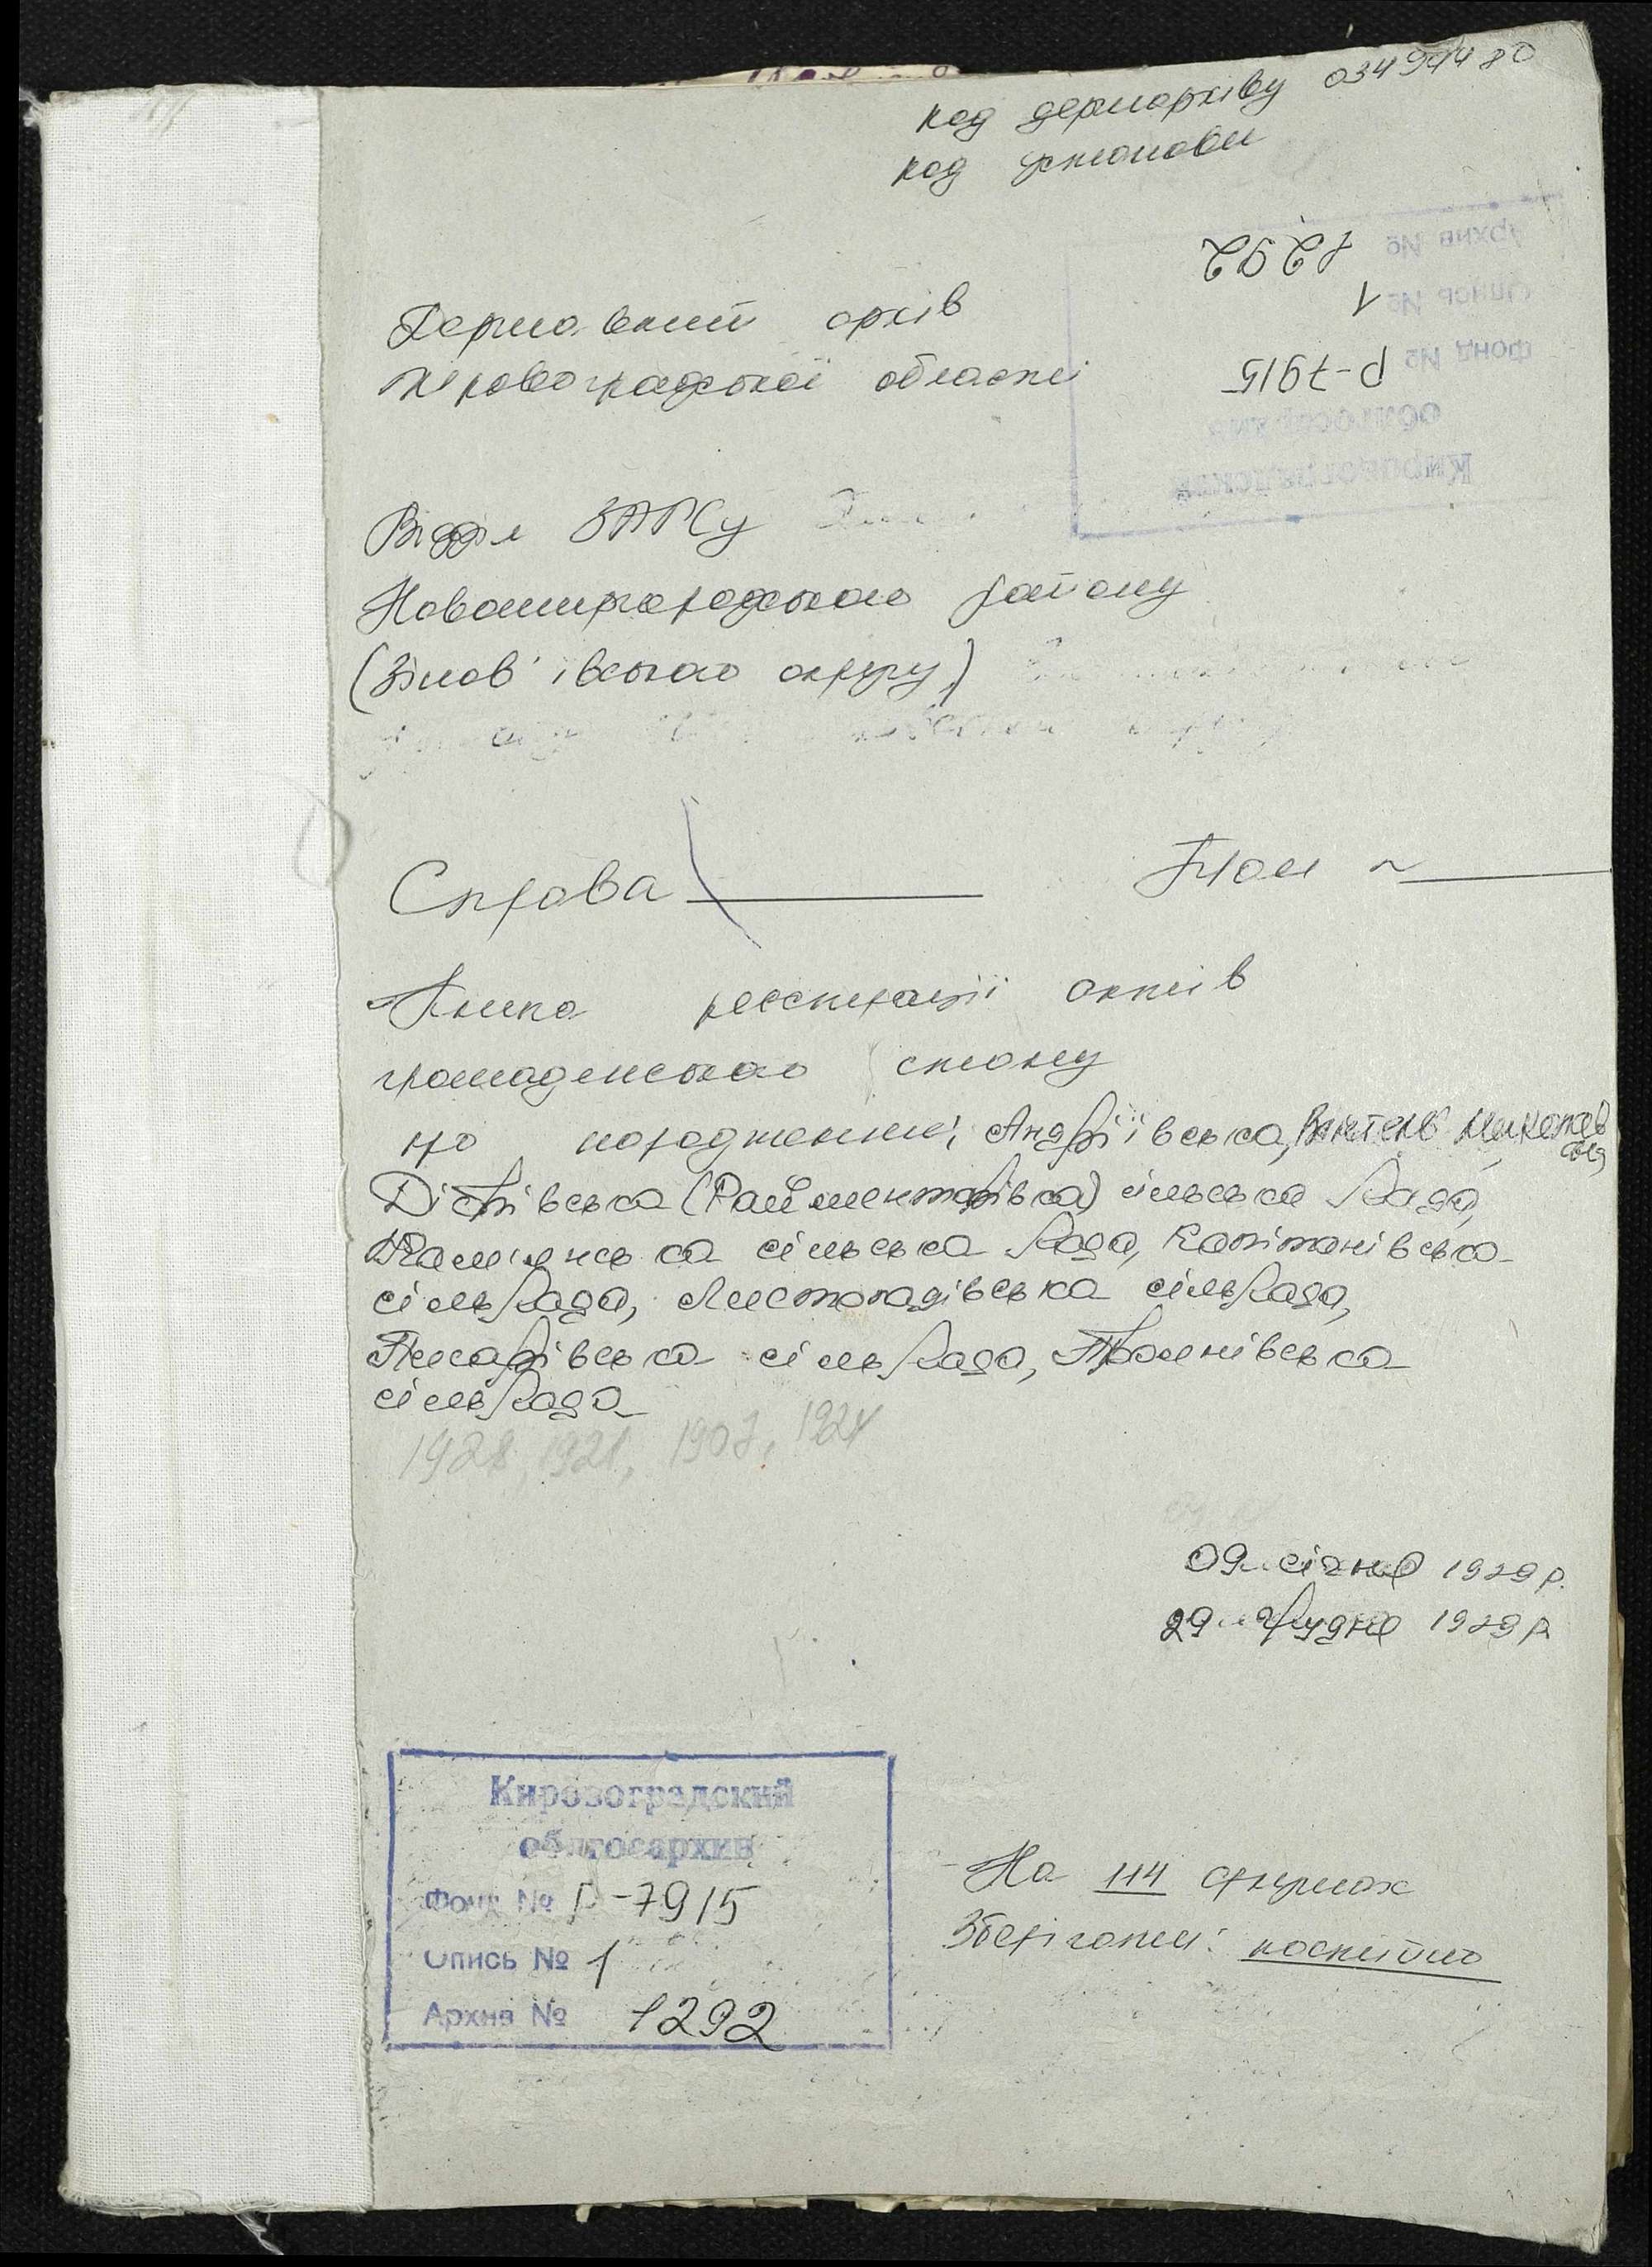 код держархіву 03494480
код установи
Архив № 1292
Опись № 1
Фонд № Р-7915
облгосархив
Кировоградский
Державний архів
Кіровоградської області
Відділ ЗАГСу
Новомиргородського району
(Зінов'ївського округу)
Справа Том
Книга реєстрації актів
громадянського стану
про народження, Андріївська, Миколаїв
ська,
Дібрівська (Райментарівка) сільська Рада,
Кам'янська сільська Рада, Капітанівська
сільРада, Листопадівська сільРада,
Писарівська сільРада, Тишківська
сільРада
1928, 1921, 1907, 1924
09 січня 1929 р.
29 грудня 1929 р.
Кировоградский
облгосархив
Фонд № Р-7915
Опись № 1
Архив № 1292
На 114 аркушах
Зберігати: постійно